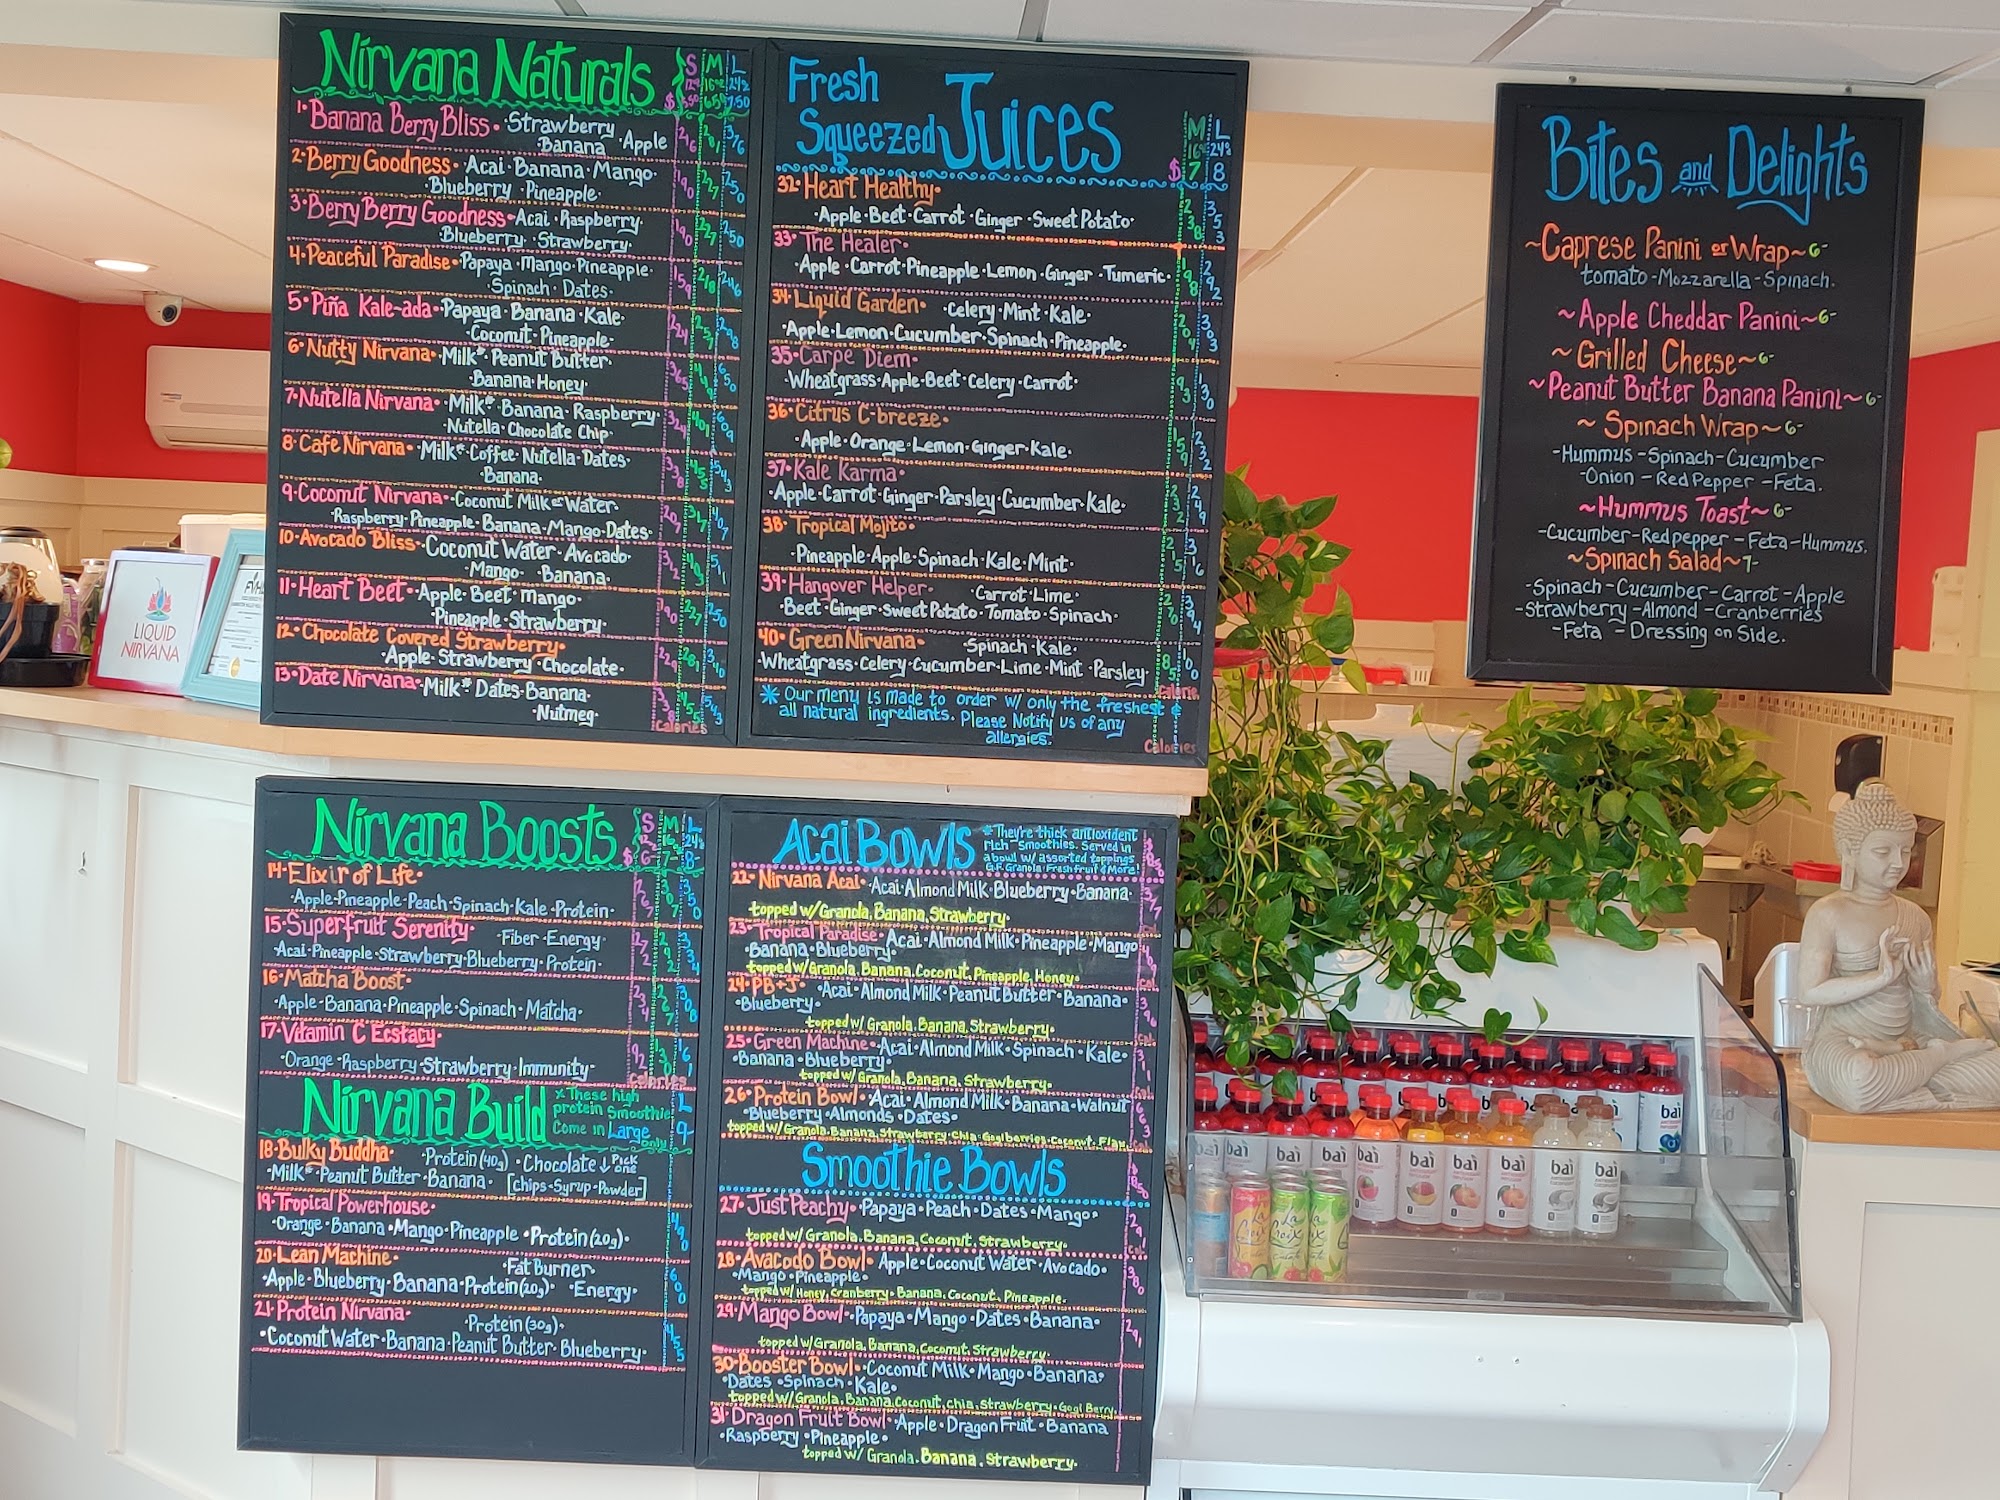 Nirvana Naturals S M L
12oz 16oz 24oz
$ 5.50 6.50 7.50
1. Banana Berry Bliss · Strawberry · Apple
· Banana
2. Berry Goodness · Acai · Banana · Mango ·
Blueberry · Pineapple · 190 227 250
3. Berry Berry Goodness · Acai · Raspberry ·
Blueberry · Strawberry · 190 227 250
4. Peaceful Paradise · Papaya · Mango · Pineapple ·
· Spinach · Dates ·
5. Piña Kale-ada · Papaya · Banana · Kale ·
· Coconut · Pineapple ·
6. Nutty Nirvana · Milk* · Peanut Butter ·
· Banana · Honey ·
7. Nutella Nirvana · Milk* · Banana · Raspberry ·
· Nutella · Chocolate Chip ·
8. Cafe Nirvana · Milk* · Coffee · Nutella · Dates ·
· Banana · 338 455 543
9. Coconut Nirvana · Coconut Milk or Water ·
Raspberry · Pineapple · Banana · Mango · Dates ·
10. Avocado Bliss · Coconut Water · Avocado ·
· Mango · · Banana ·
11. Heart Beet · Apple · Beet · mango ·
Pineapple · Strawberry · 190 227 250
12. Chocolate Covered Strawberry ·
· Apple · Strawberry · Chocolate ·
13. Date Nirvana · Milk* · Dates · Banana ·
· Nutmeg · 338 455 543
Calories
Fresh
Squeezed Juices M L
16oz 24oz
$ 7 8
32. Heart Healthy ·
· Apple · Beet · Carrot · Ginger · Sweet Potato · 238 353
33. The Healer ·
· Apple · Carrot · Pineapple · Lemon · Ginger · Tumeric · 198 292
34. Liquid Garden · · Celery · Mint · Kale ·
· Apple · Lemon · Cucumber · Spinach · Pineapple · 204 303
35. Carpe Diem ·
· Wheatgrass · Apple · Beet · Celery · Carrot · 93 130
36. Citrus C-breeze ·
· Apple · Orange · Lemon · Ginger · Kale · 159 232
37. Kale Karma ·
· Apple · Carrot · Ginger · Parsley · Cucumber · Kale · 232 249
38. Tropical Mojito ·
· Pineapple · Apple · Spinach · Kale · Mint · 215 316
39. Hangover Helper · · Carrot · Lime ·
Beet · Ginger · Sweet Potato · Tomato · Spinach · 270 394
40. Green Nirvana · · Spinach · Kale ·
· Wheatgrass · Celery · Cucumber · Lime · Mint · Parsley ·
* Our menu is made to order w/ only the freshest &
all natural ingredients. Please Notify us of any
allergies.
Calories
Bites and Delights
~Caprese Panini or Wrap~6-
tomato - Mozzarella - Spinach.
~Apple Cheddar Panini~6-
~Grilled Cheese~6-
~Peanut Butter Banana Panini~6-
~Spinach Wrap~6-
-Hummus - Spinach - Cucumber
-Onion - Red Pepper - Feta.
~Hummus Toast~6-
-Cucumber - Redpepper - Feta - Hummus.
~Spinach Salad~7-
-Spinach - Cucumber - Carrot - Apple
-Strawberry - Almond - Cranberries
-Feta - Dressing on Side.
LIQUID
NIRVANA
Nirvana Boosts S M L
$ 6- 7- 8-
14. Elixir of Life ·
· Apple · Pineapple · Peach · Spinach · Kale · Protein · 267 307 350
15. Superfruit Serenity · · Fiber · Energy ·
Acai · Pineapple · Strawberry · Blueberry · Protein · 272 292 334
16. Matcha Boost ·
· Apple · Banana · Pineapple · Spinach · Matcha · 234 267 308
17. Vitamin C Ecstacy ·
· Orange · Raspberry · Strawberry · Immunity ·
Calories
Nirvana Build * These high
protein Smoothies
Come in Large only L 9-
18. Bulky Buddha · · Protein (40g) · Chocolate ↓ Pick one
· Milk* · Peanut Butter · Banana · [Chips - Syrup - Powder]
19. Tropical Powerhouse ·
· Orange · Banana · Mango · Pineapple · Protein (20g) · 490
20. Lean Machine · · Fat Burner ·
· Apple · Blueberry · Banana · Protein (20g) · · Energy · 600
21. Protein Nirvana · · Protein (30g) ·
· Coconut Water · Banana · Peanut Butter · Blueberry · 455
Acai Bowls * They're thick antioxident
rich - Smoothies. Served in
a bowl w/ assorted toppings
G.F. Granola · Fresh fruit & More!
22. Nirvana Acai · · Acai · Almond Milk · Blueberry · Banana ·
topped w/ Granola, Banana, Strawberry · 377
23. Tropical Paradise · · Acai · Almond Milk · Pineapple · Mango
· Banana · Blueberry · 409
topped w/ Granola, Banana, Coconut, Pineapple, Honey · Cal.
24. PB+J · · Acai · Almond Milk · Peanut Butter · Banana ·
· Blueberry · 396
topped w/ Granola, Banana, Strawberry · Cal.
25. Green Machine · · Acai · Almond Milk · Spinach · Kale ·
· Banana · Blueberry · 311
topped w/ Granola, Banana, Strawberry · Cal.
26. Protein Bowl · · Acai · Almond Milk · Banana · Walnut
· Blueberry · Almonds · Dates · 663
topped w/ Granola, Banana, Strawberry, Chia, Gogi berries, Coconut, Flax. Cal.
Smoothie Bowls $8.50
27. Just Peachy · · Papaya · Peach · Dates · Mango ·
topped w/ Granola, Banana, Coconut, Strawberry · 291 Cal.
28. Avacodo Bowl · Apple · Coconut Water · Avocado ·
· Mango · Pineapple · 380
topped w/ Honey, Cranberry · Banana, Coconut, Pineapple.
29. Mango Bowl · · Papaya · Mango · Dates · Banana ·
topped w/ Granola, Banana, Coconut, Strawberry · 291
30. Booster Bowl · · Coconut Milk · Mango · Banana ·
· Dates · Spinach · Kale ·
topped w/ Granola, Banana, Coconut, Chia, Strawberry · Gogi Berry.
31. Dragon Fruit Bowl · · Apple · Dragon Fruit · Banana
· Raspberry · Pineapple ·
topped w/ Granola, Banana, Strawberry ·
bai
bai bai bai bai bai bai bai bai bai
La
Croix